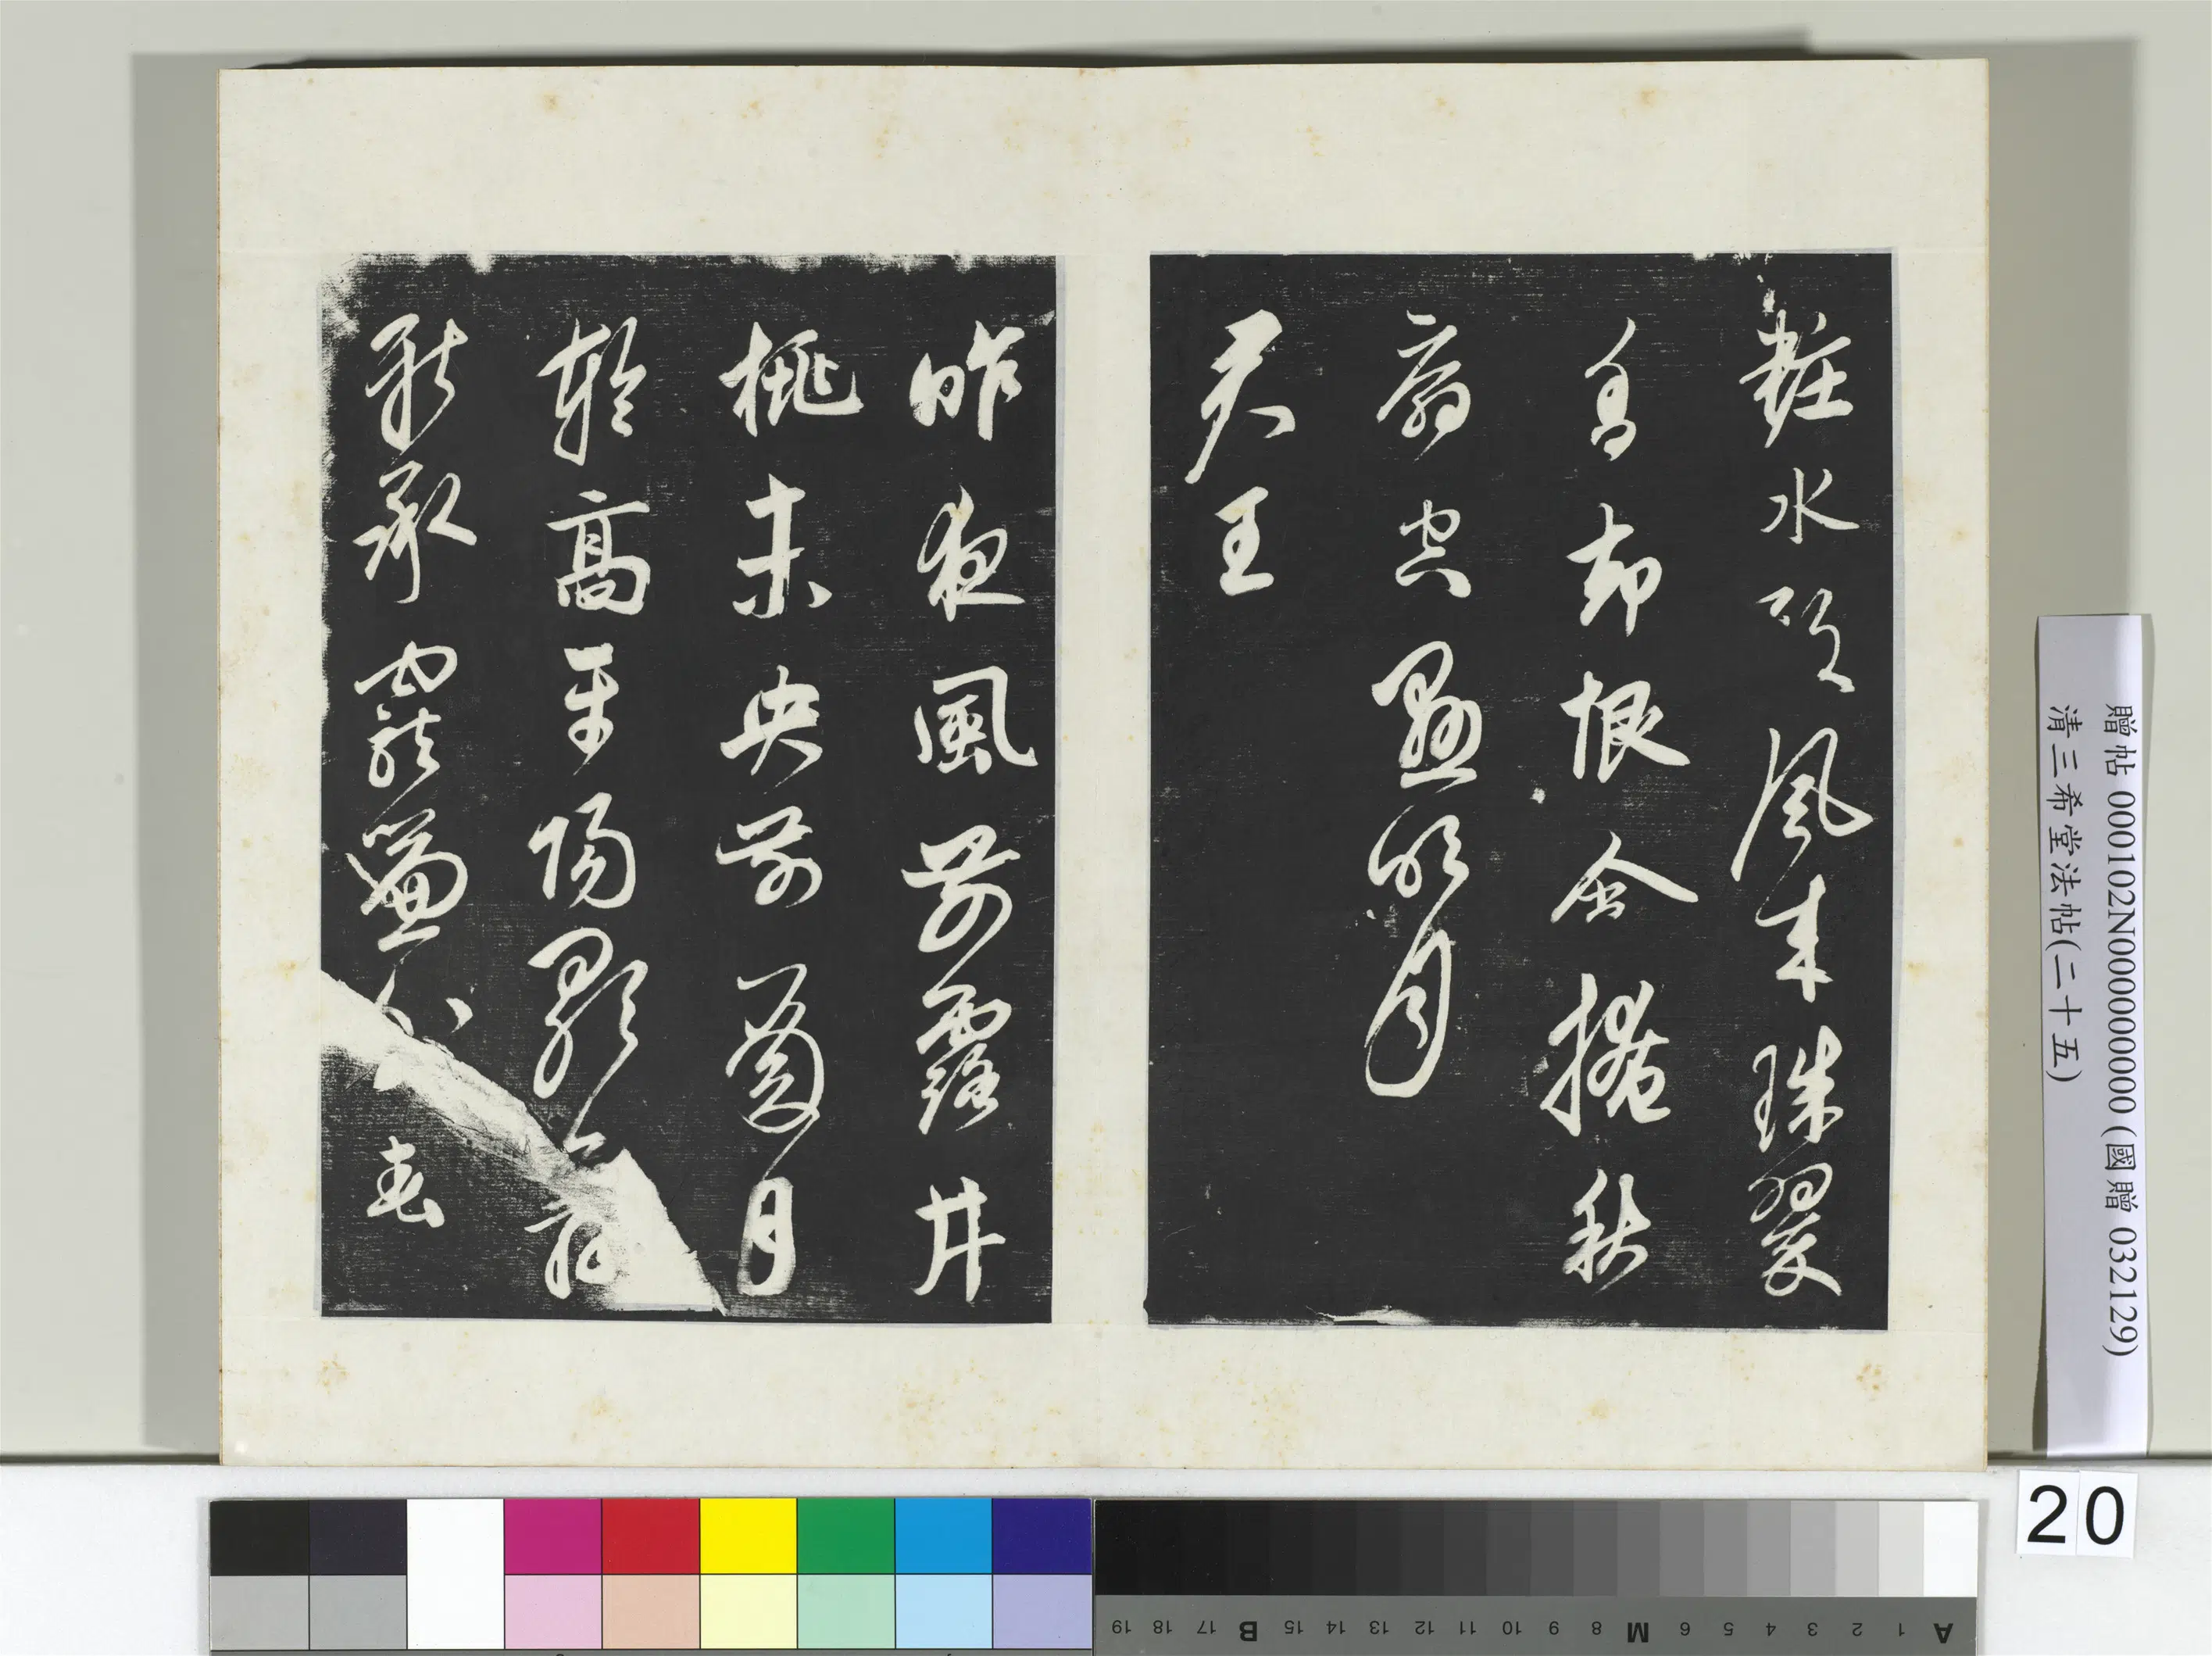 粧水殿風來珠翠
香却恨含掩秋
扇空懸明月
君王
昨夜風開露井
桃未央前殿月
輪高平陽歌舞
新承寵簾外春
贈帖 000102N000000000 (國贈 032129)
清三希堂法帖(二十五)
20
A 1 2 3 4 5 6 M 8 9 10 11 12 13 14 15 B 17 18 19